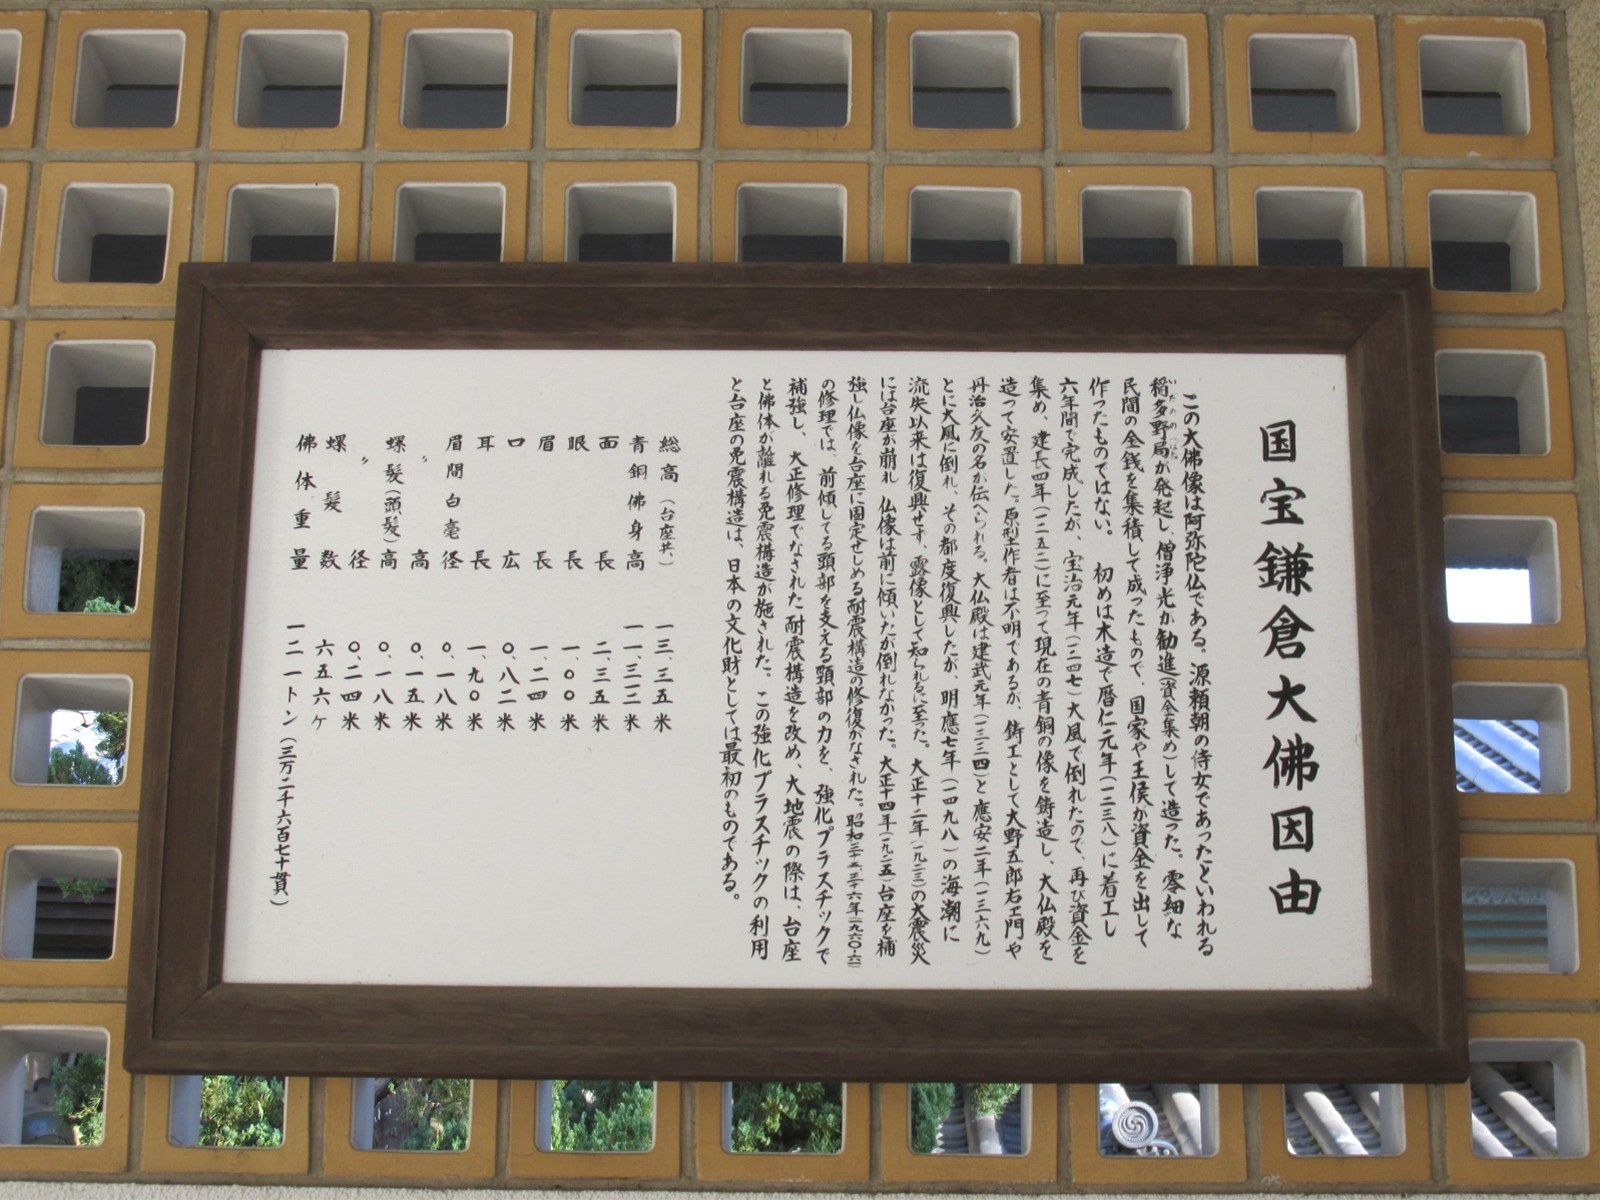 国宝鎌倉大佛因由
この大佛像は阿弥陀仏である。源頼朝の侍女であったといわれる
稲多野局が発起し、僧浄光が勧進(資金集め)して造った。零細な
民間の金銭を集積して成ったもので、国家や王侯が資金を出して
作ったものではない。 初めは木造で暦仁元年(一二三八)に着工し
六年間で完成したが、宝治元年(一二四七)大風で倒れたので、再び資金を
集め、建長四年(一二五二)に至って現在の青銅の像を鋳造し、大仏殿を
造って安置した。原型作者は不明であるが、鋳工として大野五郎右ヱ門や
丹治久友の名が伝へられる。大仏殿は建武元年(一三三四)と應安二年(一三六九)
とに大風に倒れ、その都度復興したが、明應七年(一四九八)の海潮に
流失以来は復興せず、露像として知られるに至った。大正十二年(一九二三)の大震災
には台座が崩れ 仏像は前に傾いたが倒れなかった。大正十四年(一九二五)台座を補
強し仏像を台座に固定せしめる耐震構造の修復がなされた。昭和三十五-三十六年(一九六〇-六一)
の修理では、前傾してる頭部を支える頸部の力を、強化プラスチックで
補強し、大正修理でなされた耐震構造を改め、大地震の際は、台座
と佛体が離れる免震構造が施された。この強化プラスチックの利用
と台座の免震構造は、日本の文化財としては最初のものである。
総高(台座共、) 一三、三五米
青銅佛身高 一一、三一二米
面長 二、三五米
眼長 一、〇〇米
眉長 一、二四米
口広 〇、八二米
耳長 一、九〇米
眉間白毫径 〇、一八米
〃高 〇、一五米
螺髪(頭髪)高 〇、一八米
〃径 〇、二四米
螺髪数 六五六ケ
佛体重量 一二一トン(三万二千六百七十貫)